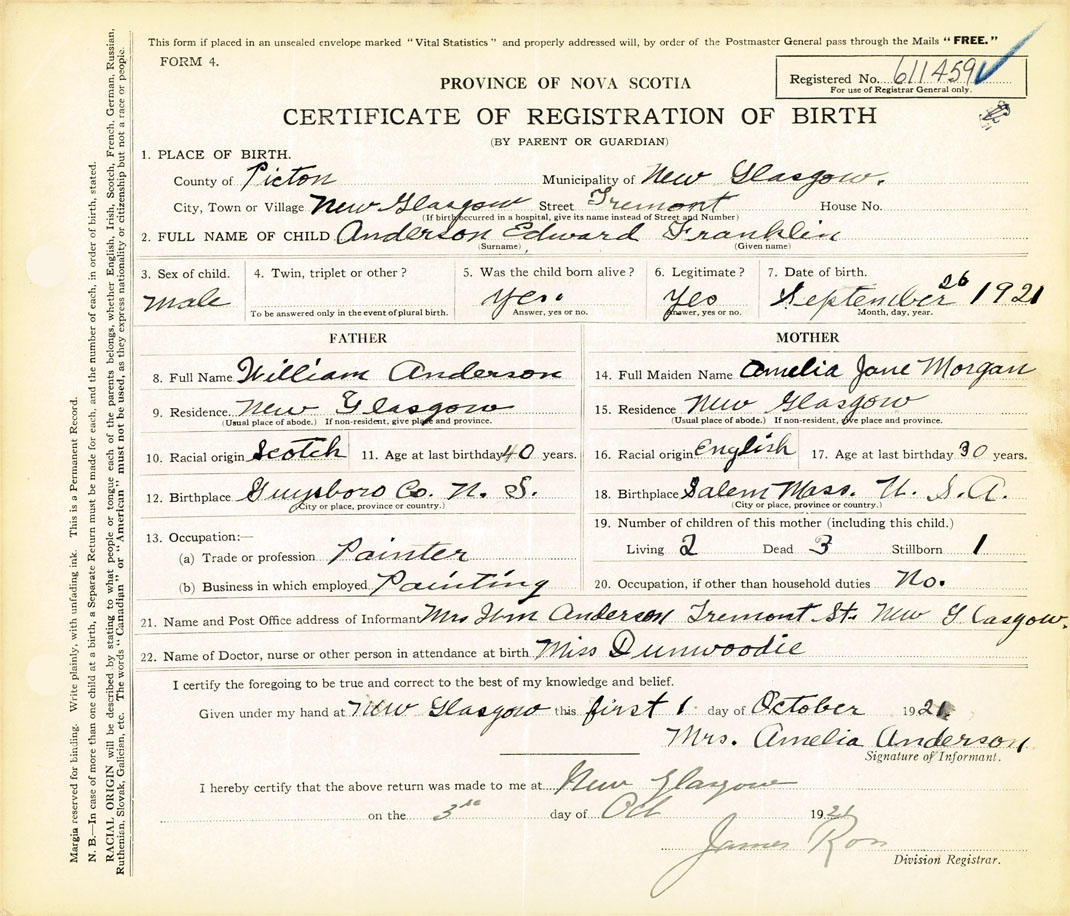 This form if placed in an unsealed envelope marked "Vital Statistics" and properly addressed will, by order of the Postmaster General pass through the Mails "FREE."
FORM 4.
Registered No. 611459
For use of Registrar General only.
PROVINCE OF NOVA SCOTIA
CERTIFICATE OF REGISTRATION OF BIRTH
(BY PARENT OR GUARDIAN)
1. PLACE OF BIRTH.
County of Picton Municipality of New Glasgow.
City, Town or Village New Glasgow Street Tremont House No.
(If birth occurred in a hospital, give its name instead of Street and Number)
2. FULL NAME OF CHILD Anderson, Edward Franklin
(Surname) (Given name)
3. Sex of child. 4. Twin, triplet or other? 5. Was the child born alive? 6. Legitimate? 7. Date of birth.
male Yes. Yes September 26 1921
To be answered only in the event of plural birth. Answer, yes or no. Answer, yes or no. Month, day, year.
FATHER MOTHER
8. Full Name William Anderson 14. Full Maiden Name Amelia Jane Morgan
9. Residence New Glasgow 15. Residence New Glasgow
(Usual place of abode.) If non-resident, give place and province. (Usual place of abode.) If non-resident, give place and province.
10. Racial origin Scotch 11. Age at last birthday 40 years. 16. Racial origin English 17. Age at last birthday 30 years.
12. Birthplace Guysboro Co. N. S. 18. Birthplace Salem Mass. U. S. A.
(City or place, province or country.) (City or place, province or country.)
13. Occupation:— 19. Number of children of this mother (including this child.)
(a) Trade or profession Painter Living 2 Dead 3 Stillborn 1
(b) Business in which employed Painting 20. Occupation, if other than household duties No.
21. Name and Post Office address of Informant Mrs Wm Anderson Tremont St. New Glasgow.
22. Name of Doctor, nurse or other person in attendance at birth Miss Dunwoodie
I certify the foregoing to be true and correct to the best of my knowledge and belief.
Given under my hand at New Glasgow this first 1 day of October 1921.
Mrs. Amelia Anderson
Signature of Informant.
I hereby certify that the above return was made to me at New Glasgow
on the 3rd day of Oct 1921
James
Division Registrar.
Margin reserved for binding. Write plainly, with unfading ink. This is a Permanent Record.
N. B.—In case of more than one child at a birth, a Separate Return must be made for each, and the number of each, in order of birth, stated.
RACIAL ORIGIN will be described by stating to what people or tongue each of the parents belongs, whether English, Irish, Scotch, French, German, Russian,
Ruthenian, Slovak, Galician, etc. The words "Canadian" or "American" must not be used, as they express nationality or citizenship but not a race or people.